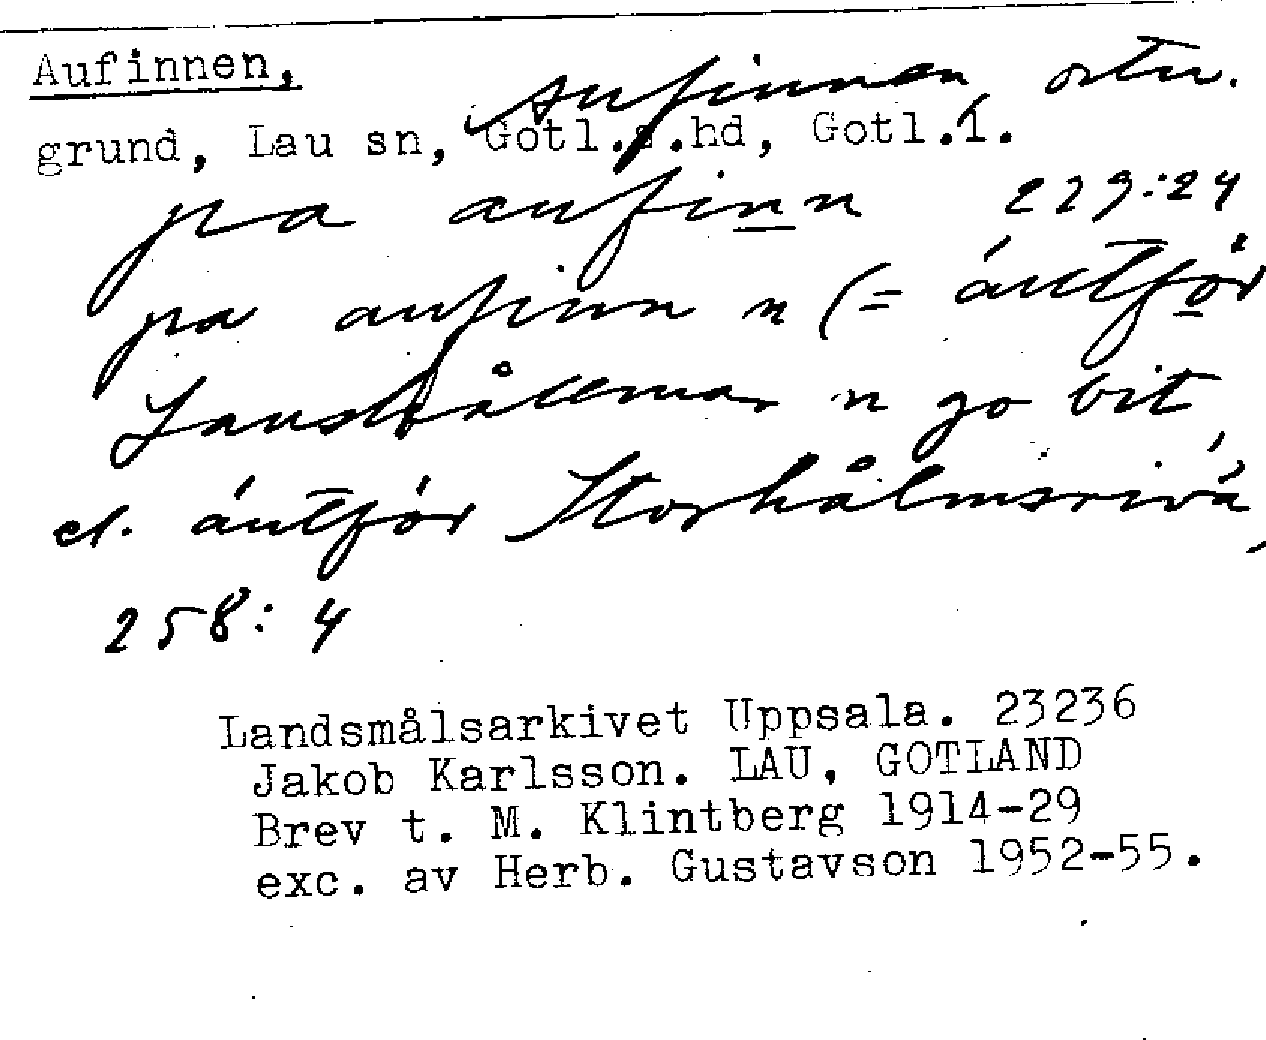 Aufinnen,
Aufinnen, ortn.
grund, Lau sn, Gotl.s.hd, Gotl.l.
pa aufinn 229:24
pa aufinn n (= áutför
Laushållmar n go bit,
el. áutfór Storhålmsrivá,
258:4
Landsmålsarkivet Uppsala. 23236
Jakob Karlsson. LAU, GOTLAND
Brev t. M. Klintberg 1914-29
exc. av Herb. Gustavson 1952-55.